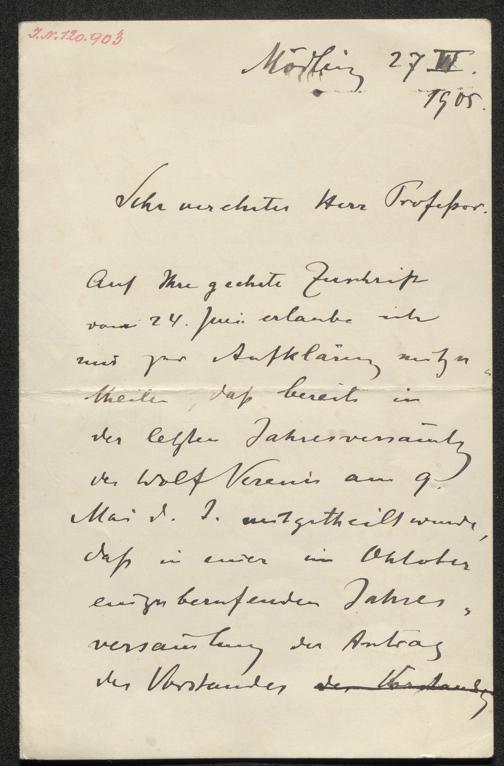 I.N. 120.903
Mödling 27 VI.
1905.
Sehr verehrter Herr Professor.
Auf Ihre geehrte Zuschrift
vom 24. Juni erlaube ich
mir zur Aufklärung mitzu-
theilen, daß bereits in
der letzten Jahresversamlg
des Wolf Vereins am 9.
Mai d. J. mitgetheilt wurde,
daß in einer im Oktober
einzuberufenden Jahres-
versamlung der Antrag
des Vorstandes des Vorstandes